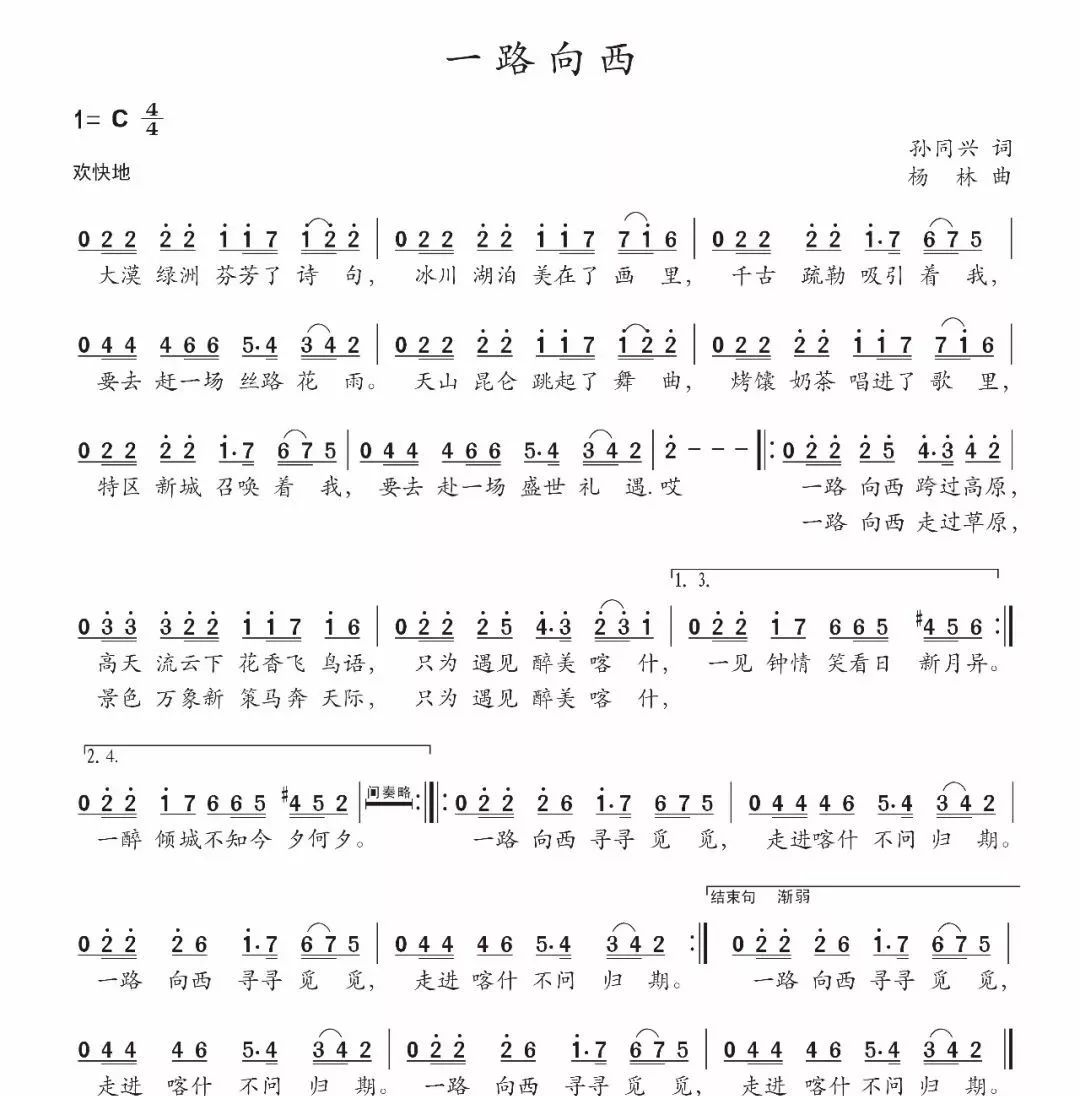 一路向西
1= C 4/4
孙同兴 词
欢快地
杨 林 曲
0 2 2 2 2 1 1 7 1 2 2 | 0 2 2 2 2 1 1 7 7 1 6 | 0 2 2 2 2 1· 7 6 7 5 |
大漠 绿洲 芬芳了 诗 句， 冰川 湖泊 美在了 画 里， 千古 疏勒 吸引 着 我，
0 4 4 4 6 6 5· 4 3 4 2 | 0 2 2 2 2 1 1 7 1 2 2 | 0 2 2 2 2 1 1 7 7 1 6 |
要去 赶一场 丝路 花 雨。 天山 昆仑 跳起了 舞 曲， 烤馕 奶茶 唱进了 歌 里，
0 2 2 2 2 1· 7 6 7 5 | 0 4 4 4 6 6 5· 4 3 4 2 | 2 - - - ‖: 0 2 2 2 5 4· 3 4 2 |
特区 新城 召唤 着 我， 要去 赴一场 盛世 礼 遇. 哎 一路 向西 跨过高原，
一路 向西 走过草原，
1. 3.
0 3 3 3 2 2 1 1 7 1 6 | 0 2 2 2 5 4· 3 2 3 1 | 0 2 2 1 7 6 6 5 #4 5 6 :‖
高天 流云下 花香飞 鸟语， 只为 遇见 醉美 喀 什， 一见 钟情 笑看日 新月异。
景色 万象新 策马奔 天际， 只为 遇见 醉美 喀 什，
2. 4.
0 2 2 1 7 6 6 5 #4 5 2 | 间奏略 :‖: 0 2 2 2 6 1· 7 6 7 5 | 0 4 4 4 6 5· 4 3 4 2 |
一醉 倾城不知今 夕何夕。 一路 向西 寻寻 觅 觅， 走进喀什 不问 归 期。
结束句 渐弱
0 2 2 2 6 1· 7 6 7 5 | 0 4 4 4 6 5· 4 3 4 2 :‖ 0 2 2 2 6 1· 7 6 7 5 |
一路 向西 寻寻 觅 觅， 走进 喀什 不问 归 期。 一路 向西 寻寻 觅 觅，
0 4 4 4 6 5· 4 3 4 2 | 0 2 2 2 6 1· 7 6 7 5 | 0 4 4 4 6 5· 4 3 4 2 ‖
走进 喀什 不问 归 期。 一路 向西 寻寻 觅 觅， 走进 喀什 不问 归 期。